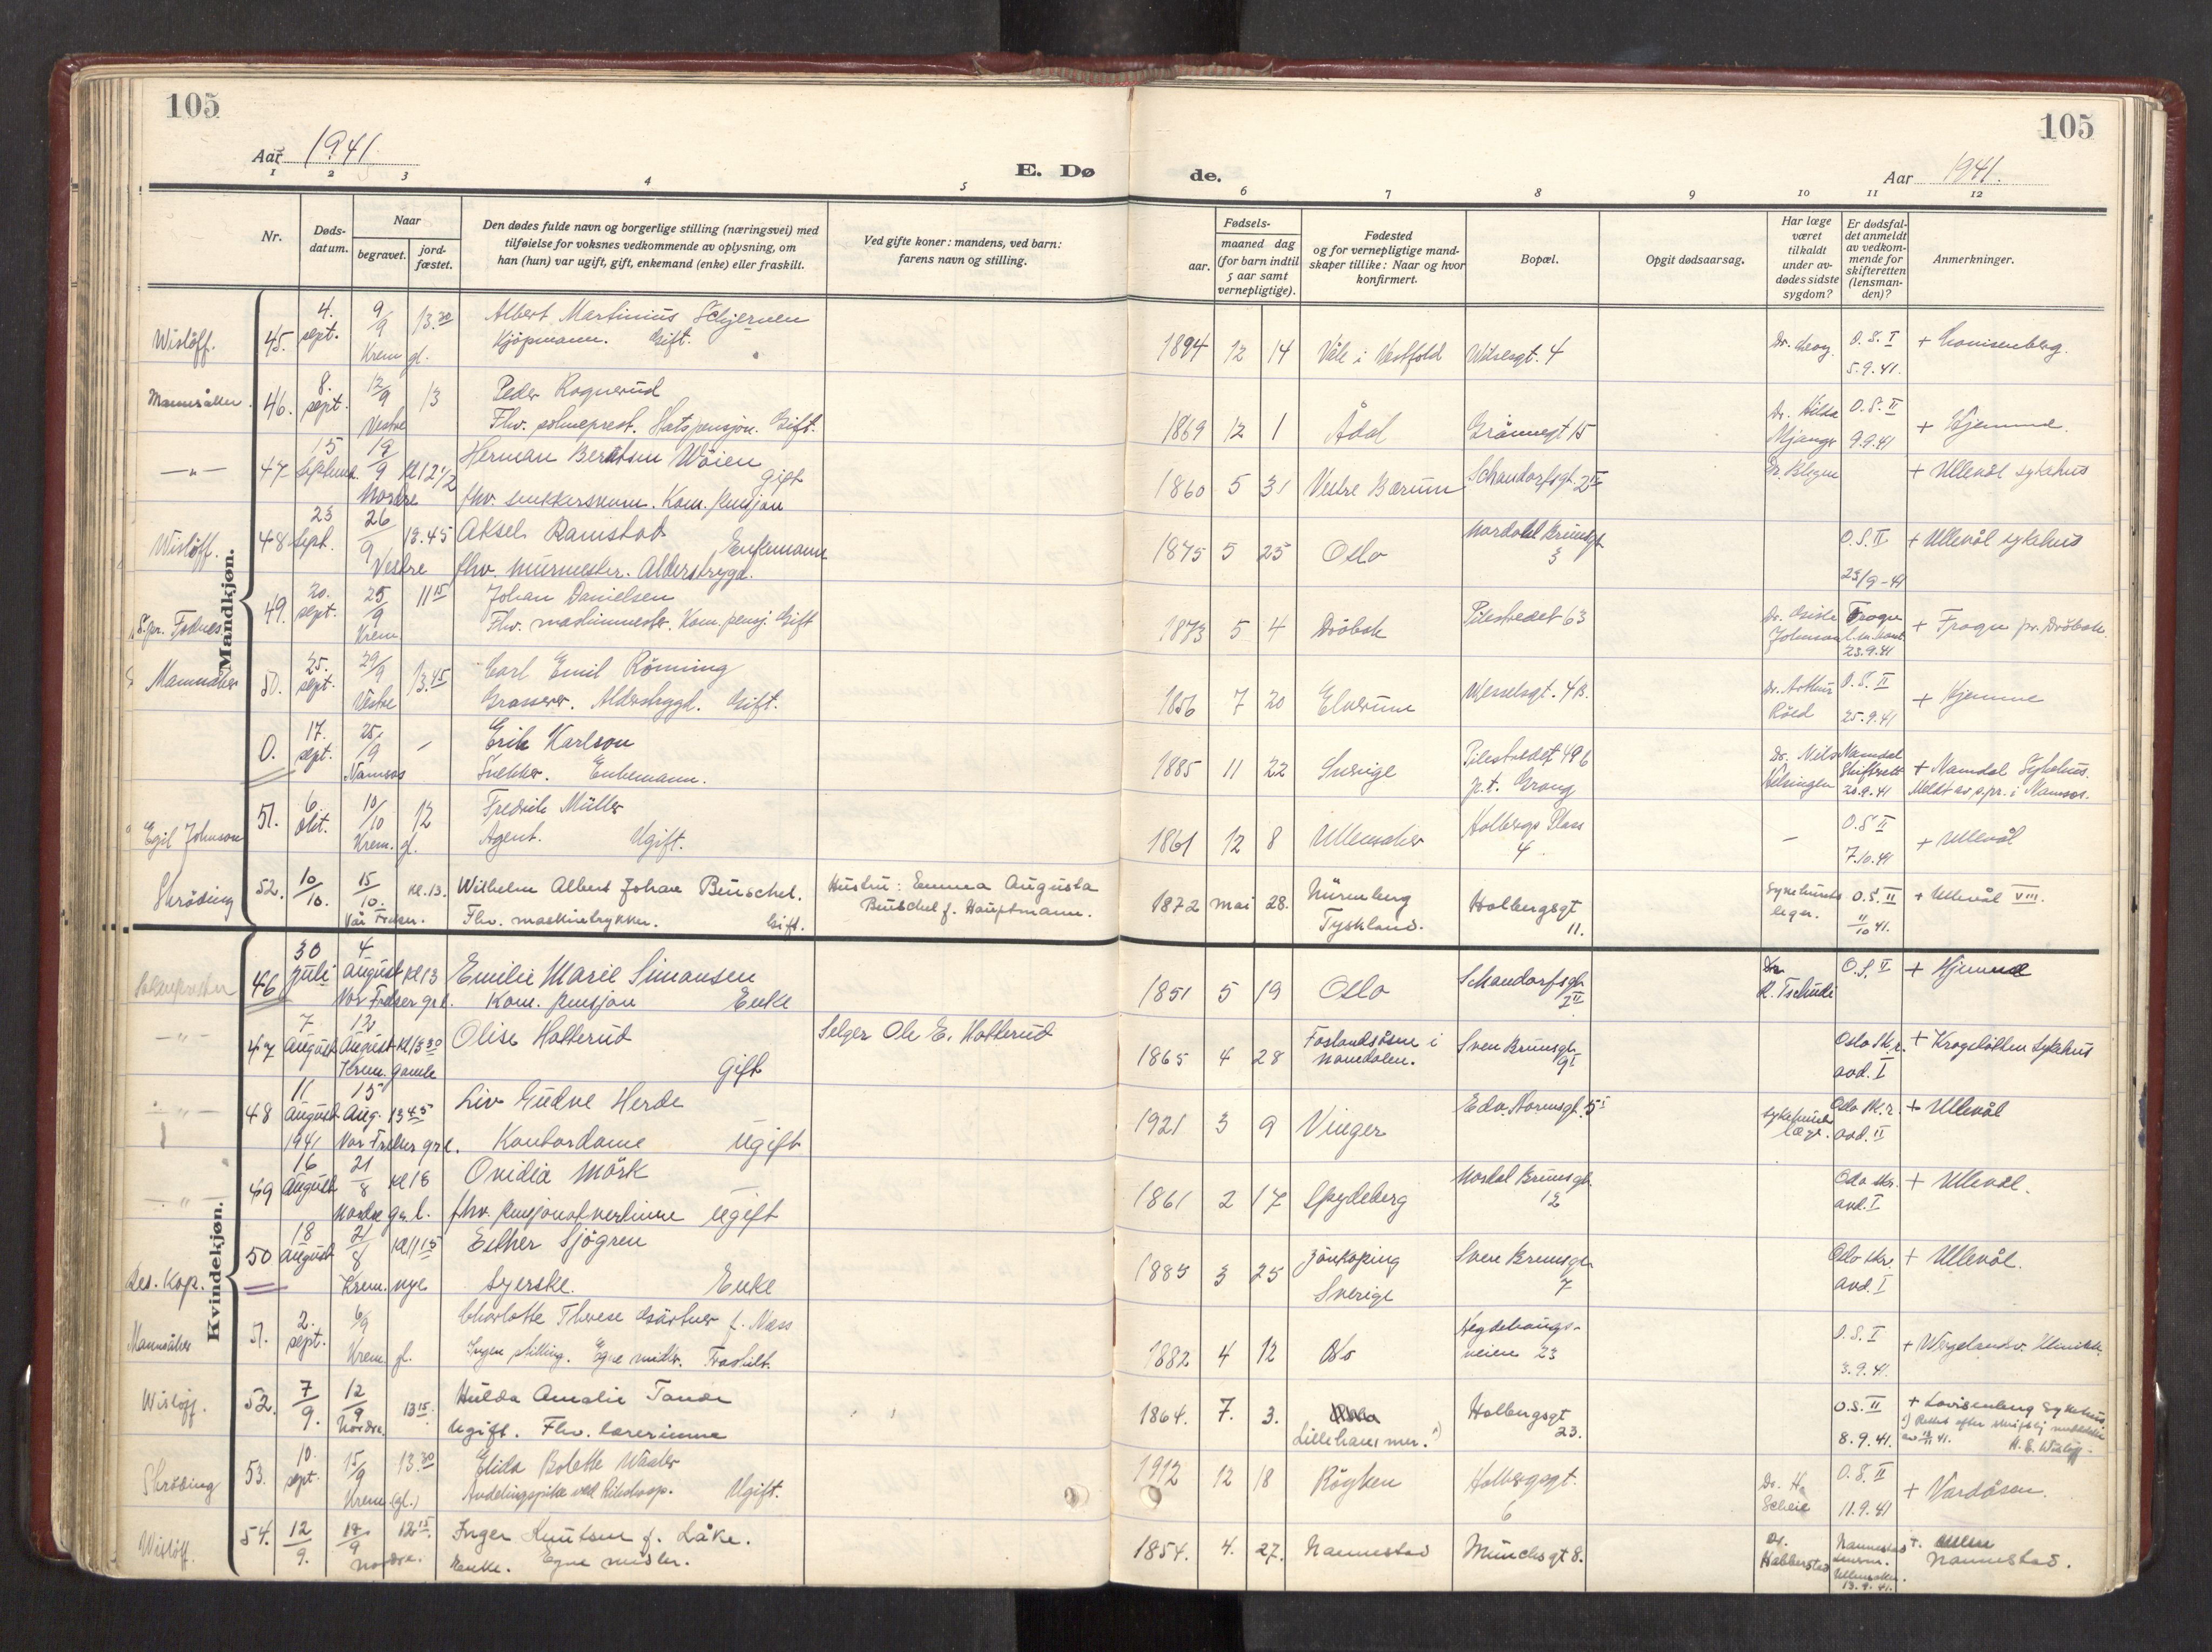 105
105
Aar 1941.
E. Dø
de.
Aar 1941.
1 2 3 4 5 6 7 8 9 10 11 12
Nr.
Døds-
datum.
Naar
begravet.
jord-
fæstet.
Den dødes fulde navn og borgerlige stilling (næringsvei) med
tilføielse for voksnes vedkommende av oplysning, om
han (hun) var ugift, gift, enkemand (enke) eller fraskilt.
Ved gifte koner: mandens, ved barn:
farens navn og stilling.
Fødsels-
aar.
maaned dag
(for barn indtil
5 aar samt
vernepligtige).
Fødested
og for vernepligtige mand-
skaper tillike: Naar og hvor
konfirmert.
Bopæl.
Opgit dødsaarsag.
Har læge
været
tilkaldt
under av-
dødes sidste
sygdom?
Er dødsfal-
det anmeldt
av vedkom-
mende for
skifteretten
(lensman-
den)?
Anmerkninger.
Mandkjøn.
Wislöff. 45. 4. sept. 9/9 13.30 Albert Martinius Schjerven
Krem gl. Kjöpmann. Gift.
1894 12 14 Våle i Vestfold Wilsesgt. 4 O.S. I + Lovisenberg.
5.9.41.
46. 8. sept. 12/9 13 Peder Rognerud
Vestre Fhv. Statspensjon. Gift.
1869 12 1 Ådal Grönnegt 15 Dr. Hilda O.S. II + Hjemme.
9.9.41
—"— 47 15 19/9 kl 12 1/2 Herman Berntsen Wöien
Nordre gift
fhv. snekkersvenn. Kom. pensjon
1860 5 31 Vestre Bærum Schandorfsgt. 2 II + Ullevål sykehus
Wislöff. 48 23 sept. 26/9 13.45 Aksel Ramstad
Enkemann
Vestre fhv. murmester. Alderstrygd.
1875 5 25 Oslo Nordahl Brunsgt 3 O.S. II + Ullevål sykehus
23/9-41
49. 20. sept. 25/9 11 15 Johan Danielsen
Krem Fhv. maskinmester. Kom. pensj. Gift
1873 5 4 Dröbak Pilestredet 63 Frogn + Frogn pr. Dröbak.
23.9.41
50. 25. sept. 29/9 13.45 Carl Emil Rönning
Vestre Grosserer. Alderstrygd. Gift.
1856 7 20 Elverum Wesselsgt. 4B. Dr. Arthur O.S. II + Hjemme
25.9.41
0. 17. sept. 25./9 — Erik Karlson
Namsos Snekker. Enkemann.
1885 11 22 Sverige Pilestredet 49b Dr. Nils Namdal + Namdal Sykehus.
p.t. Grong Skifterett
20.9.41 Meldt av s.pr. i Namsos.
Egil Johnson 51. 6. okt. 10/10 12 Fredrik Müller
Krem. gl. Agent. Ugift.
1861 12 8 Ullensaker Holbergs Plass 4 — O.S II + Ullevål
7.10.41
Skröding 52. 10/10. 15/10. Kl. 13. Wilhelm Albert Johan Beuschel. Hustru: Emma Augusta
Vår Frelser. Fhv. maskintrykker. Gift. Beuschel f. Hauptmann.
1872 mai 28. Nürnberg Holbergsgt 11. O.S. II + Ullevål VIII.
Tyskland. 11/10 41.
Kvindekjøn.
46 30 juli 4 august Kl 13 Emilie Marie Simonsen
Vor Frelser grl. Kom. pensjon Enke
1851 5 19 Oslo Schandorfsgt. 2 II Dr. R. Tschudi O.S. II + Hjemme
—"— 47 7 august 12 august Kl 13 30 Olise Hatterud Selger Ole E. Hatterud
Krem. gamle Gift
1865 4 28 Foslandsåsen i Namdalen. Sven Brunsgt. Oslo sk.r. avd. I + Krogstötten sykehus
—"— 48 11 august 1941 15 Aug. 13 45 Liv Gudve Herde
Vor Frelser grl. Kontordame Ugift
1921 3 9 Vinger Edv. Stormsgt. 5 I Oslo sk.r. avd. II + Ullevål
—"— 49 16 august 21/8 Kl 18 Ovidia Mörk
Nordre grl. fhv. pensjonatvertinne Ugift
1861 2 17 Spydeberg Nordal Brunsgt. 12 Oslo skr. avd. I + Ullevål.
Res. Kap. 50 18 august 21/8 Kl 11 15 Esther Sjögren
Krem. nye Syerske. Enke
1883 3 25 Jönköping Sverige Sven Brunsgt 7 Oslo skr. avd. I + Ullevål.
51. 2. sept. 6/9 Charlotte Therese Gärtner f. Næss
Krem. gl. Ingen stilling. Egne midler. Fraskilt.
1882 4 12 Oslo Hegdehaugs-
veien 23 O.S. I
3.9.41.
Wislöff. 52. 7/9. 12/9 13 15. Hulda Amalie Tande
Nordre. Ugift. Fhv. lærerinne
1864. 7. 3. Lillehammer. Holbergsgt 23. O.S. II + Lovisenberg Sykehus.
8.9.41.
Skröding 53. 10. sept. 15/9 13.30 Elida Bolette
Krem (gl.) Ugift.
1912 12 18 Röyken Holbergsgt. 6 O.S. II + Vardåsen.
11.9.41
Wislöff. 54. 12/9. 17/9 12 15. Inger Knutsen f. Låke.
Nordre. Enke. Egne midler.
1854. 4. 27. Nannestad Munchsgt 8. Nannestad +
Nannestad.
13.9.41.